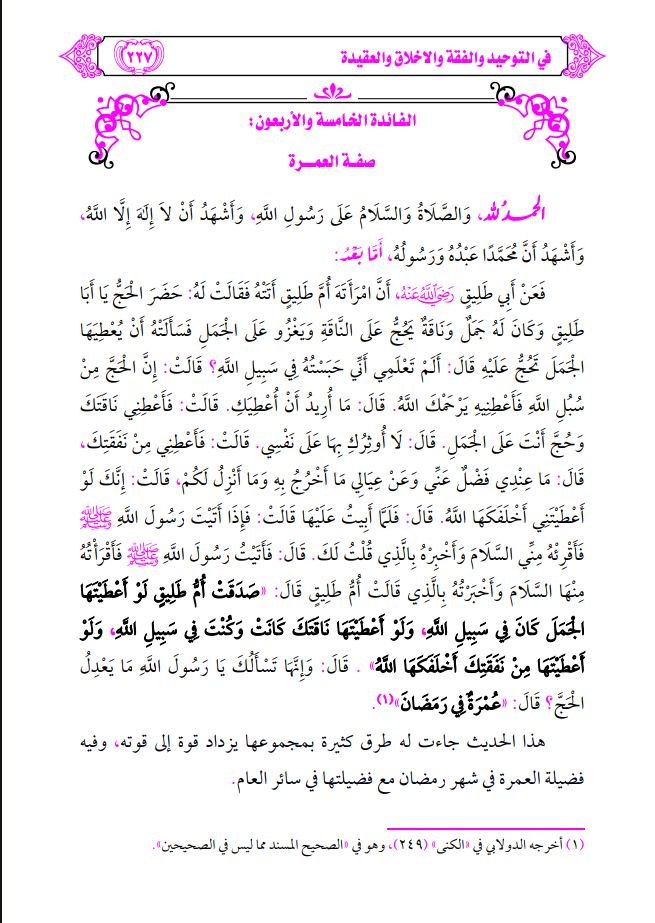 في التوحيد والفقة والاخلاق والعقيدة
٢٢٧
الفائدة الخامسة والأربعون:
صفة العمـــرة
الحمدُ لله، وَالصَّلَاةُ وَالسَّلَامُ عَلَى رَسُولِ اللهِ، وَأَشْهَدُ أَنْ لَا إِلَهَ إِلَّا اللهُ،
وَأَشْهَدُ أَنَّ مُحَمَّدًا عَبْدُهُ وَرَسُولُهُ، أَمَّا بَعْدُ:
فَعَنْ أَبِي طَلِيقٍ رَضِيَ اللَّهُ عَنْهُ، أَنَّ امْرَأَتَهُ أُمَّ طَلِيقٍ أَتَتْهُ فَقَالَتْ لَهُ: حَضَرَ الْحَجُّ يَا أَبَا
طَلِيقٍ وَكَانَ لَهُ جَمَلٌ وَنَاقَةٌ يَحُجُّ عَلَى النَّاقَةِ وَيَغْزُو عَلَى الْجَمَلِ فَسَأَلَتْهُ أَنْ يُعْطِيَهَا
الْجَمَلَ تَحُجُّ عَلَيْهِ قَالَ: أَلَمْ تَعْلَمِي أَنِّي حَبَسْتُهُ فِي سَبِيلِ اللهِ؟ قَالَتْ: إِنَّ الْحَجَّ مِنْ
سُبُلِ اللهِ فَأَعْطِنِيهِ يَرْحَمْكَ اللهُ. قَالَ: مَا أُرِيدُ أَنْ أُعْطِيَكِ. قَالَتْ: فَأَعْطِنِي نَاقَتَكَ
وَحُجَّ أَنْتَ عَلَى الْجَمَلِ. قَالَ: لَا أُوثِرُكِ بِهَا عَلَى نَفْسِي. قَالَتْ: فَأَعْطِنِي مِنْ نَفَقَتِكَ،
قَالَ: مَا عِنْدِي فَضْلٌ عَنِّي وَعَنْ عِيَالِي مَا أَخْرُجُ بِهِ وَمَا أَنْزِلُ لَكُمْ، قَالَتْ: إِنَّكَ لَوْ
أَعْطَيْتَنِي أَخْلَفَكَهَا اللهُ. قَالَ: فَلَمَّا أَبَيْتُ عَلَيْهَا قَالَتْ: فَإِذَا أَتَيْتَ رَسُولَ اللهِ ﷺ
فَأَقْرِئْهُ مِنِّي السَّلَامَ وَأَخْبِرْهُ بِالَّذِي قُلْتُ لَكَ. قَالَ: فَأَتَيْتُ رَسُولَ اللهِ ﷺ فَأَقْرَأْتُهُ
مِنْهَا السَّلَامَ وَأَخْبَرْتُهُ بِالَّذِي قَالَتْ أُمُّ طَلِيقٍ قَالَ: «صَدَقَتْ أُمُّ طَلِيقٍ لَوْ أَعْطَيْتَهَا
الْجَمَلَ كَانَ فِي سَبِيلِ اللهِ، وَلَوْ أَعْطَيْتَهَا نَاقَتَكَ كَانَتْ وَكُنْتَ فِي سَبِيلِ اللهِ، وَلَوْ
أَعْطَيْتَهَا مِنْ نَفَقَتِكَ أَخْلَفَكَهَا اللهُ» . قَالَ: وَإِنَّهَا تَسْأَلُكَ يَا رَسُولَ اللهِ مَا يَعْدِلُ
الْحَجَّ؟ قَالَ: «عُمْرَةٌ فِي رَمَضَانَ»(١).
هذا الحديث جاءت له طرق كثيرة بمجموعها يزداد قوة إلى قوته، وفيه
فضيلة العمرة في شهر رمضان مع فضيلتها في سائر العام.
(١) أخرجه الدولابي في «الكنى» (٢٤٩)، وهو في «الصحيح المسند مما ليس في الصحيحين».